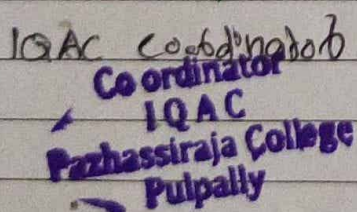 IQAC Coordinator
Coordinator
IQAC
Pazhassiraja College
Pulpally